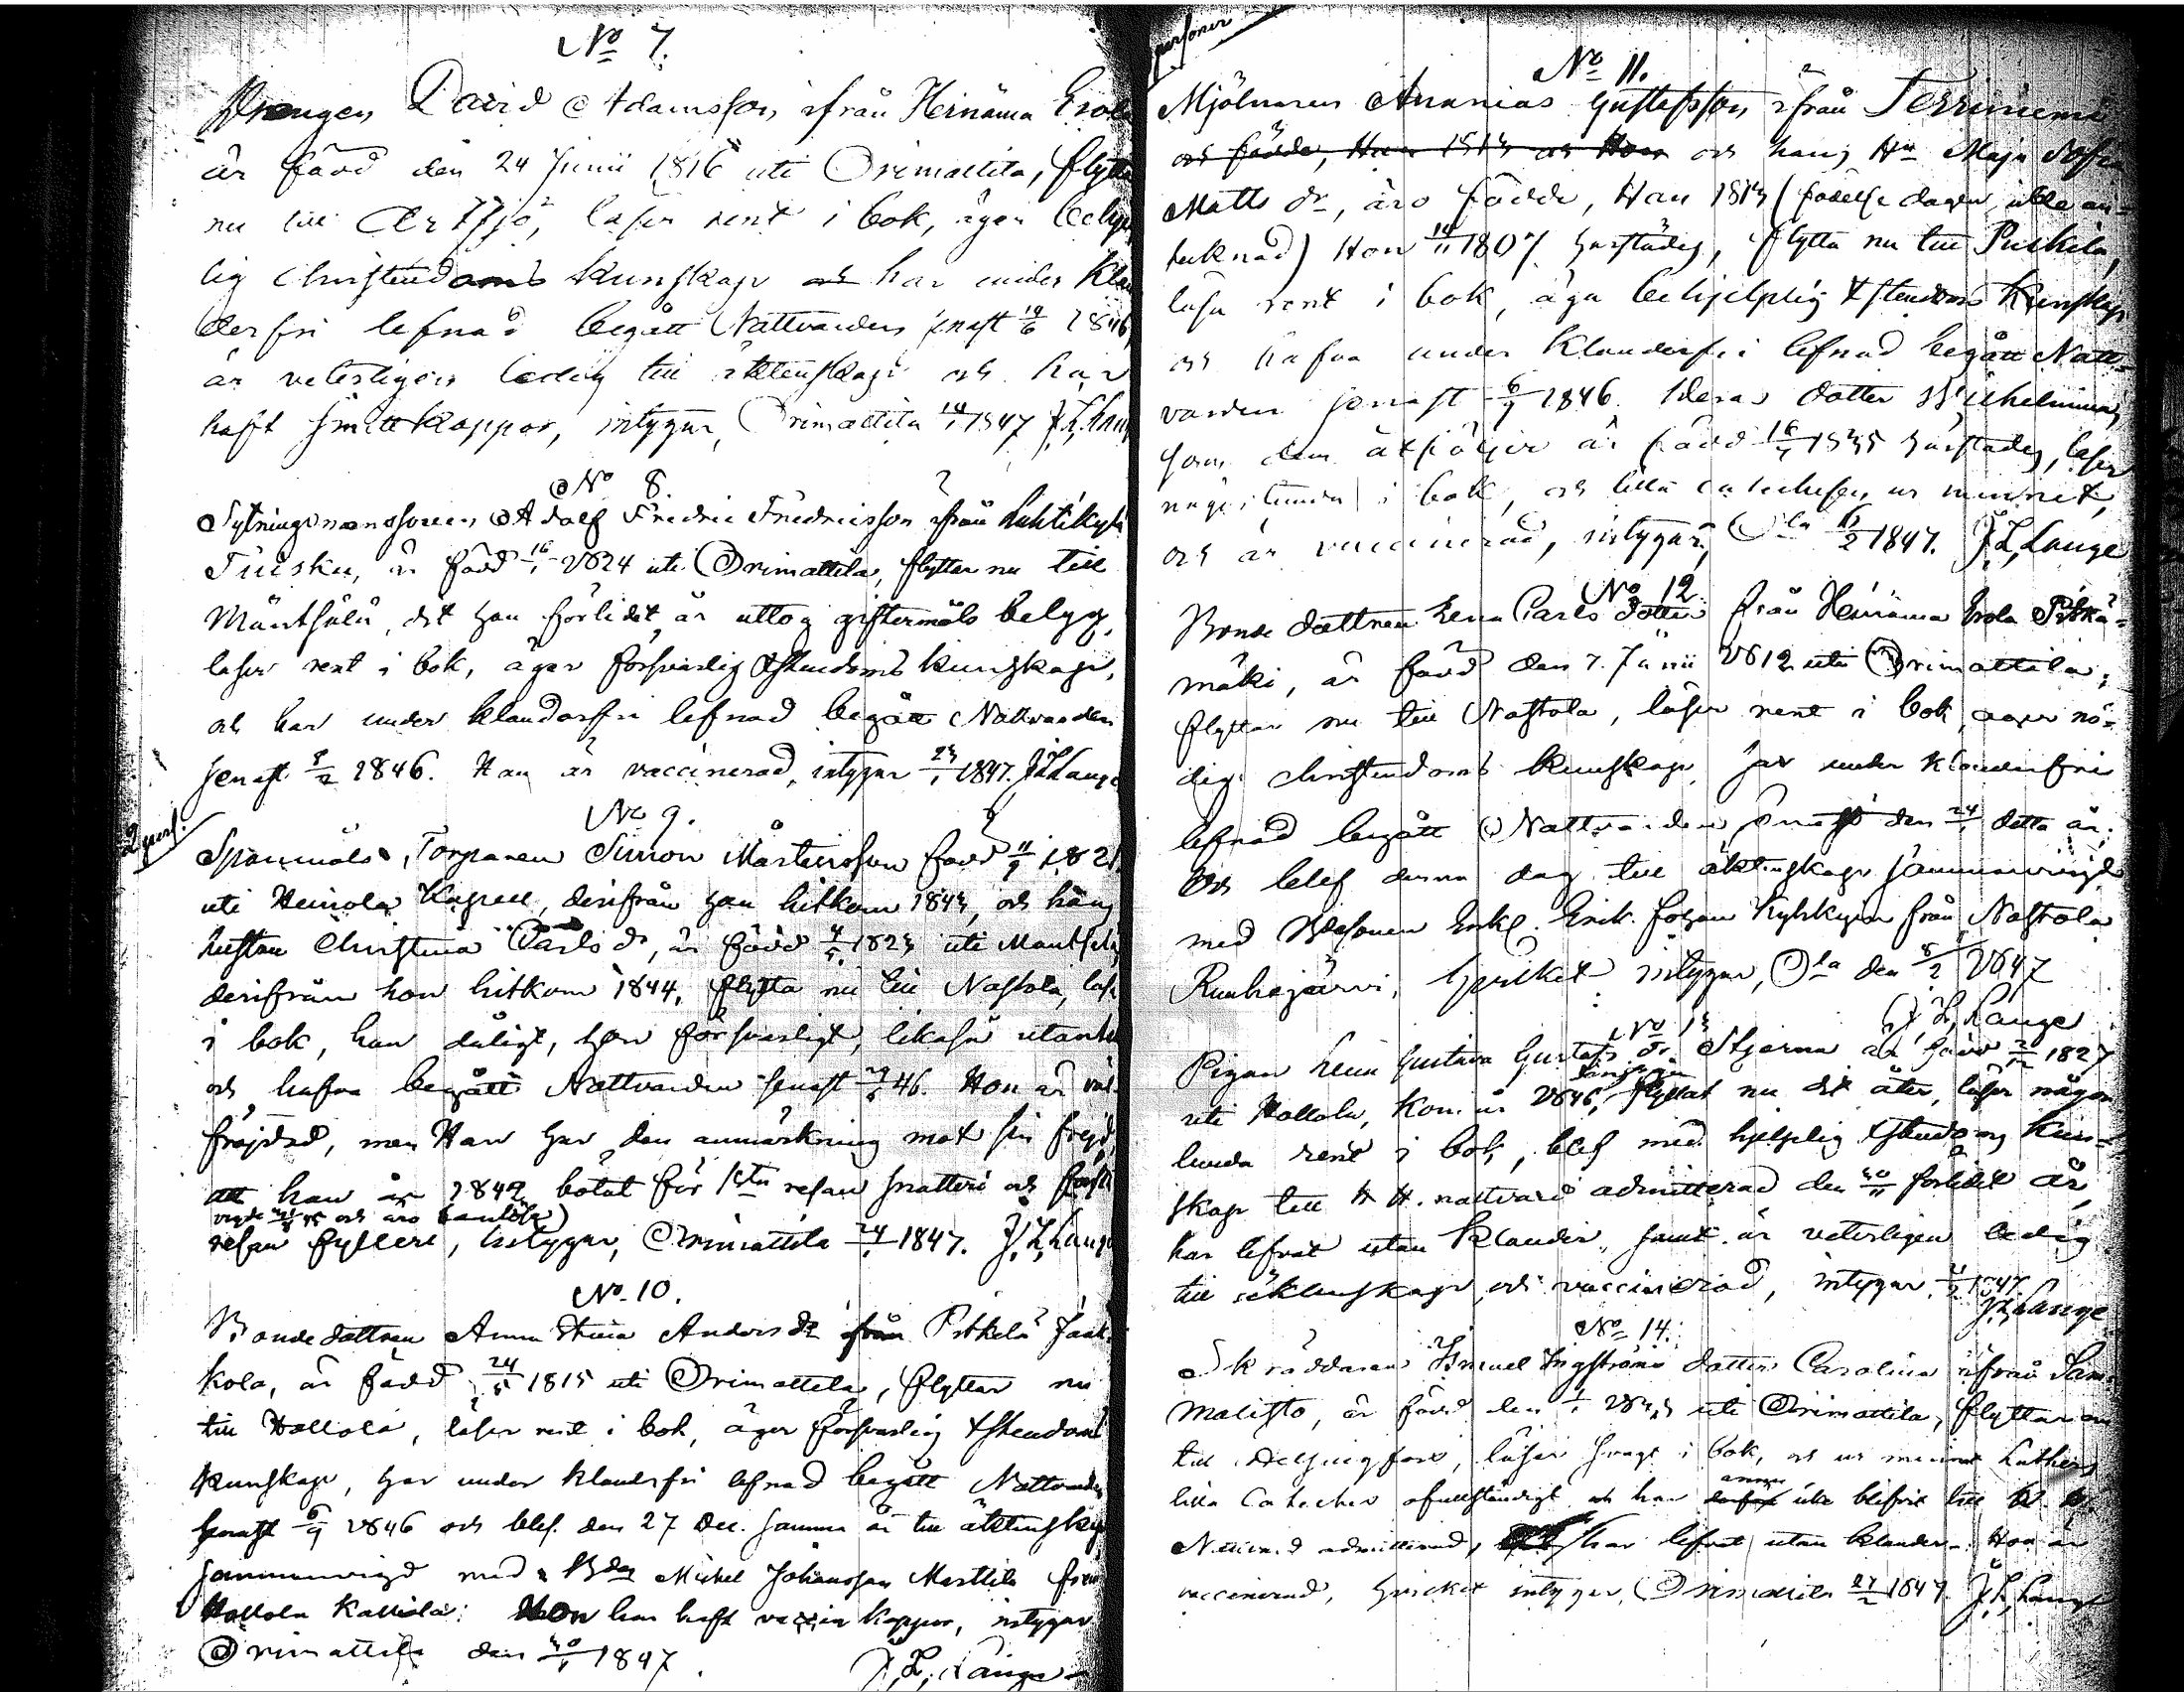 No 7.
Drengen David Adamsson ifrån Heinäma Erola
är född den 24 Junii 1816 uti Orimattila, flyttar
nu till Artsjö, läser rent i bok, äger behjelp
lig Christendoms kunskap och har under klan
derfri lefnad begått Nattvarden senast 14/6 1846
är veterligen ledig till äktenskap och har
haft smittkoppor, intygar, Orimattila 14/1 1847 J. L. Lange
No 8.
Sytningsmanssonen Adolf Fredric Fredricsson ifrån Luhtikylä
är född 16/1 1824 uti Orimattila, flyttar nu till
Mäntsälä, dit han förlidet år uttog giftermåls betyg,
läser rent i bok, äger försvarlig Xstendoms kunskap,
och har under klanderfri lefnad begått Nattvarden
senast 8/2 1846. Han är vaccinerad, intygar 23/1 1847. J. L. Lange
2 pers.
No 9.
Spanmåls Torparen Simon Mårtensson född 11/9 1821
uti Heinola Kapell, derifrån han hitkom 1843, och hans
hustru Christina Carls dr, är född 4/5 1823 uti Mäntsälä
derifrån hon hitkom 1844, flytta nu till Nastola, läsa
i bok, han dåligt, hon försvarligt, likaså utantill
och hafva begått Nattvarden senast 46. Hon är väl
fräjdad, men Han har den anmärkning mot sin frejd,
att han år 1842 botat för 1sta resan snatteri och första
och äro barnlöse)
resan fylleri, intygar, Orimattila 24/1 1847. J. L. Lange
No 10.
Bondedottren Anna Stina Anders dr ifrån Pitkelä Jaak
kola, är född 24/5 1815 uti Orimattila, flyttar nu
till Hollola, läser rent i bok, äger försvarlig Xstendoms
kunskap, har under klanderfri lefnad begått Nattvarden
senast 6/9 1846 och blef den 27 Dec. samma år till äktenskap
sammanvigd med Michel Johansson Marttila från
Hollola Kalliola. Hon har haft vaccin koppor, intygar
Orimattila den 30/1 1847. J. L. Lange
personer
No 11.
Mjölnaren Ananias Gustafsson ifrån Terriniemi
och födde, Han 1813 och Hon och hans Hu Maja Sofia
Matts dr, äro födde, Han 1813 (födelse dagen icke an=
teknad) Hon 14/11 1807 härstädes, flytta nu till Puskila,
läsa rent i bok, äga behjelplig Xstendoms kunskap
och hafva under klanderfri lefnad begått Natt=
varden senast 6/9 1846. Deras dotter Wilhelmina,
som dem åtföljer är född 16/4 1835 härstädes, läser
någorlunda i bok, och lilla catechesen ur minnet,
och är vaccinerad, intygar, Ola 1847. J. L. Lange
No 12
Bonde dottren Lena Carls dotter från Heinäma Erola Pitkä=
mäki, är född den 7. Junii 1812 uti Orimattila,
flyttar nu till Nastola, läser rent i bok, äger nö=
dig Christendoms kunskap, har under klanderfri
lefnad begått Nattvarden senast den 24/1 detta år,
och blef denna dag till äktenskap sammanvigd
med Erik Johan från Nastola
Ruuhijärvi, hvilket intygar, Ola den 8/2 1847
J. L. Lange
No 13
Pigan Lena Gustava Gustafs dr Stjerna är född 1827
uti Hollola, kom år 1846, flyttar nu dit åter, läser någor
lunda rent i bok, blef med hjelplig Xstendoms kun=
skap till H. H. nattvard admitterad den 30/11 förlidet år,
har lefvat utan klander, samt är veterligen ledig
till äktenskap och vaccinerad, intygar 1847
J. L. Lange
No 14.
Skräddaren Ismael Engströms dotter Carolina ifrån Sam
malisto, är född den uti Orimattila, flyttar nu
till Helsingfors, läser svagt i bok, och ur minnet Luthers
lilla Cateches ofullständigt och har ännu icke blifvit till H. H.
Nattvard admitterad, har lefvat utan klander. Hon är
vaccinerad, hvilket intygar, Orimattila 27/2 1847. J. L. Lange